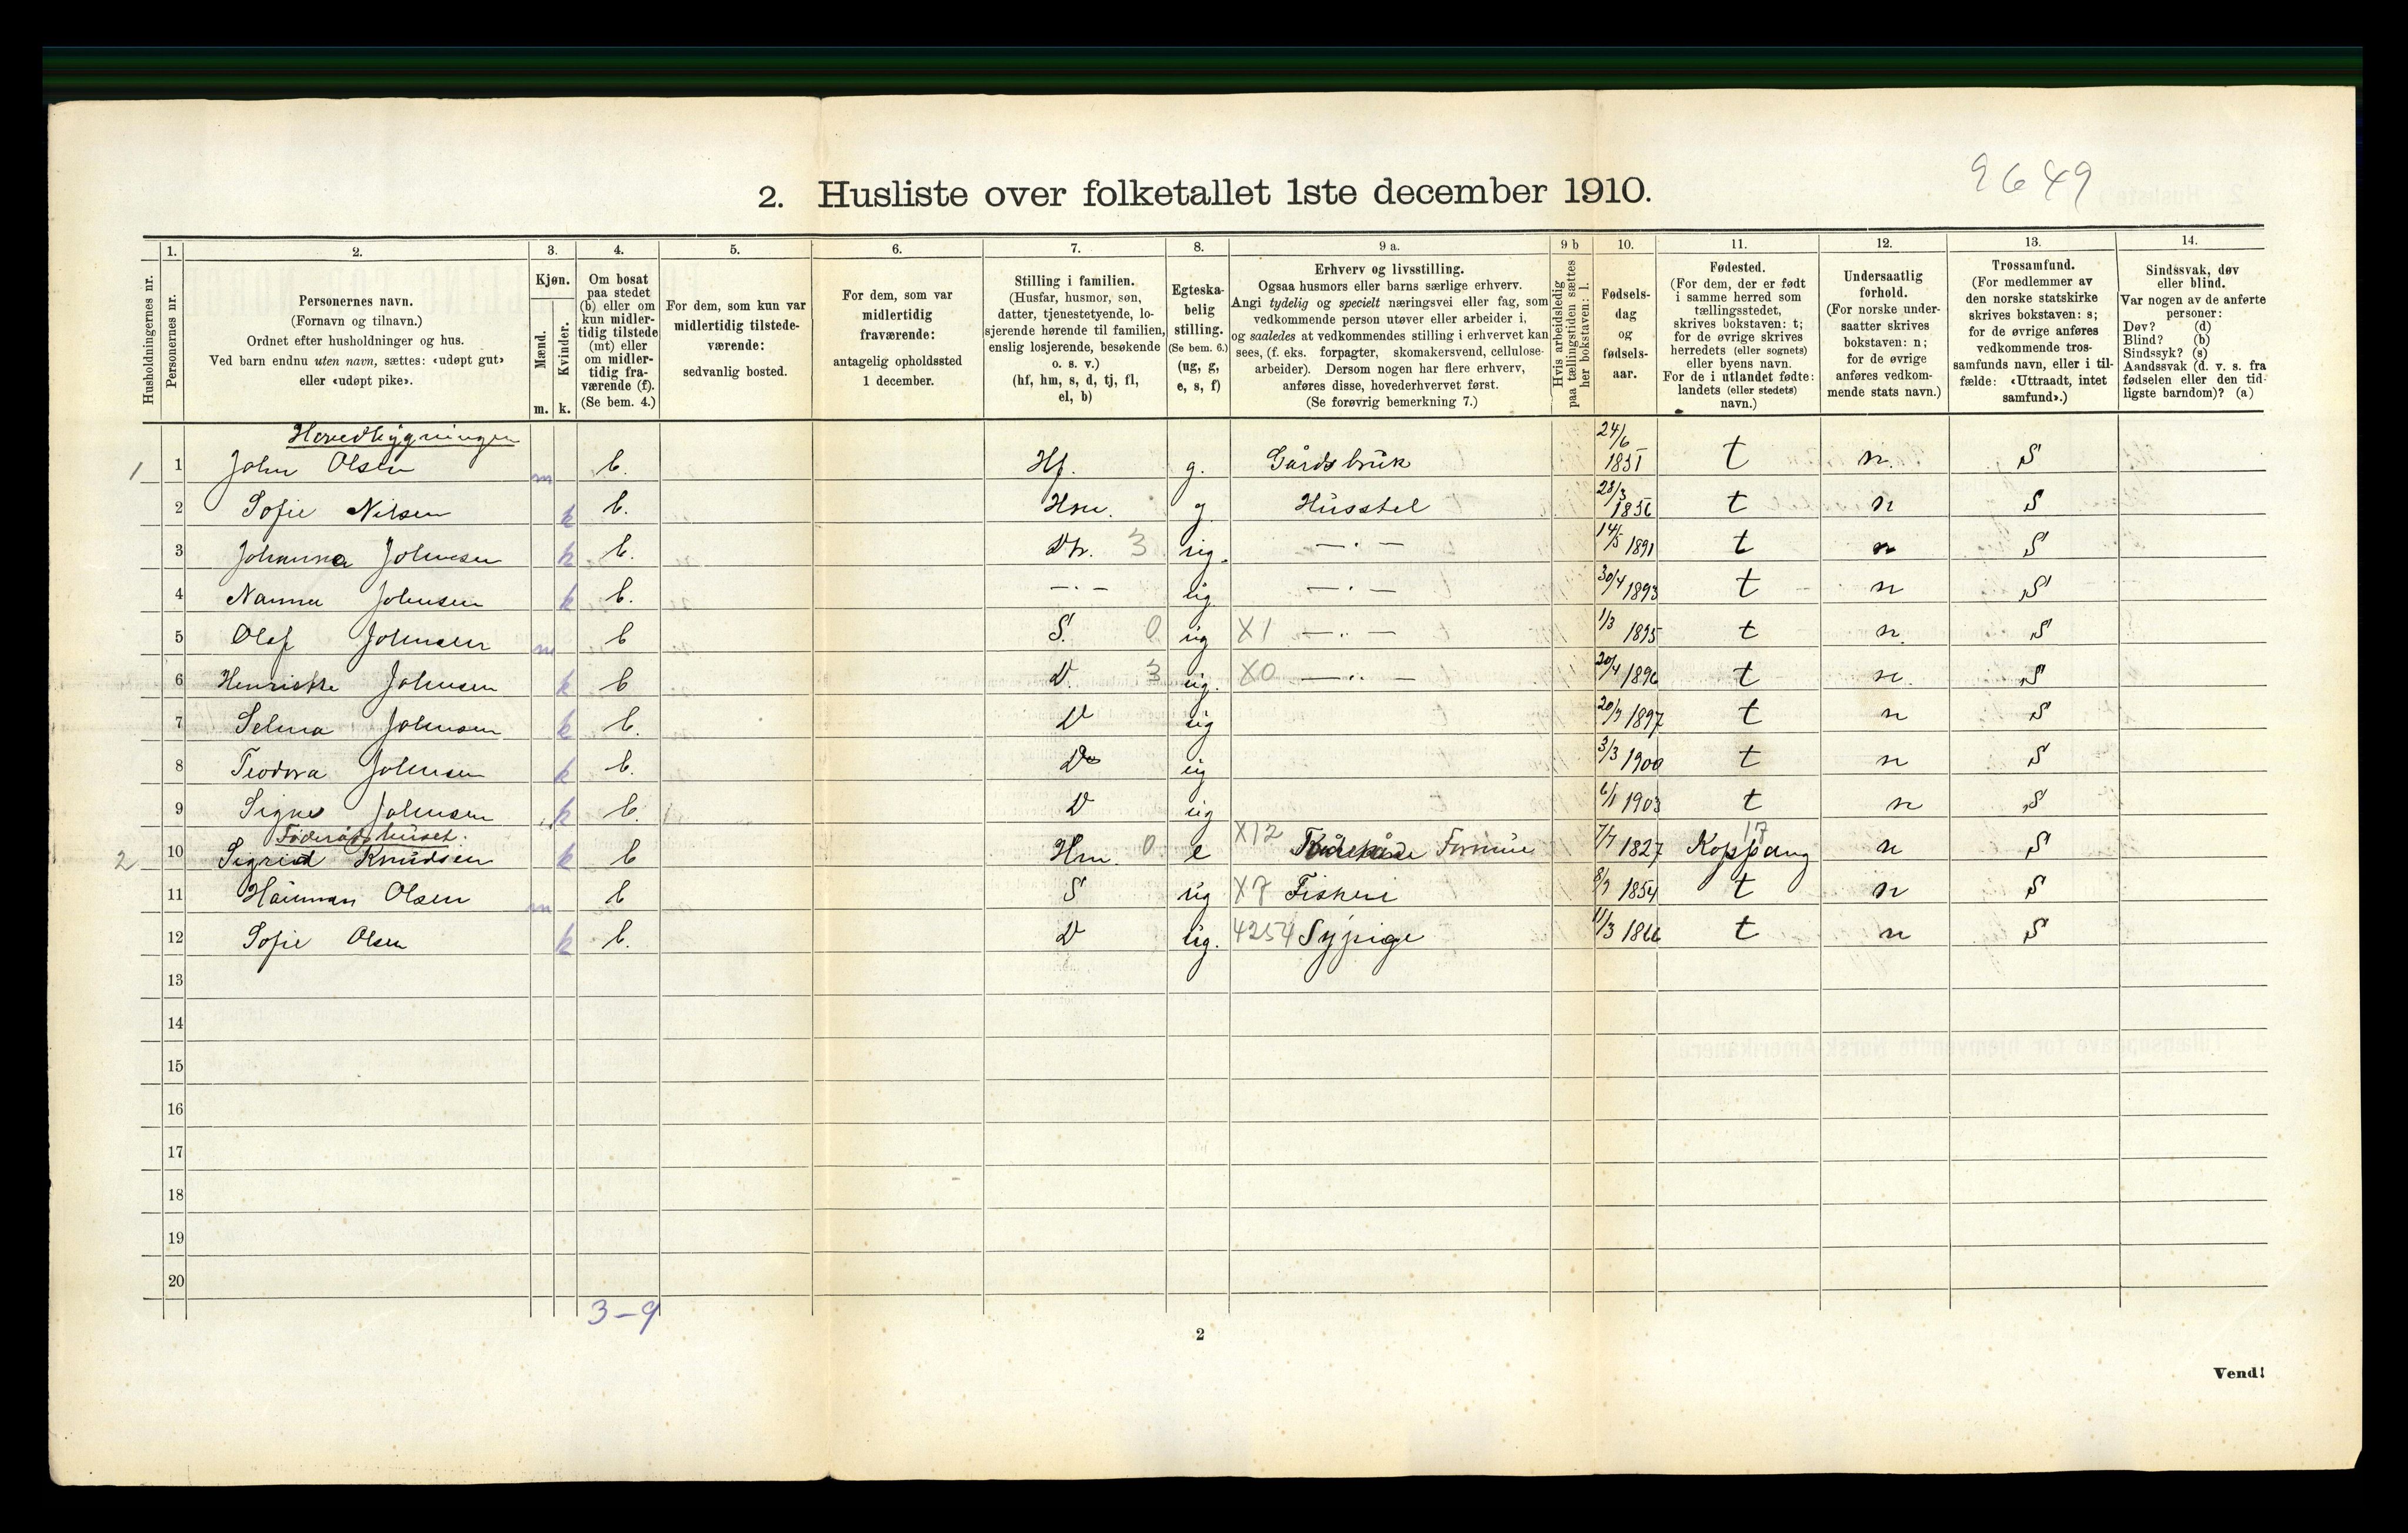 9649
2. Husliste over folketallet 1ste december 1910.
1. 2. 3. 4. 5. 6. 7. 8. 9 a. 9 b 10. 11. 12. 13. 14.
Husholdningernes nr.
Personernes nr.
Personernes navn.
(Fornavn og tilnavn.)
Ordnet efter husholdninger og hus.
Ved barn endnu uten navn, sættes: «udøpt gut»
eller «udøpt pike».
Kjøn.
Mænd.
Kvinder.
m. k.
Om bosat
paa stedet
(b) eller om
kun midler-
tidig tilstede
(mt) eller
om midler-
tidig fra-
værende (f).
(Se bem. 4.)
For dem, som kun var
midlertidig tilstede-
værende:
sedvanlig bosted.
For dem, som var
midlertidig
fraværende:
antagelig opholdssted
1 december.
Stilling i familien.
(Husfar, husmor, søn,
datter, tjenestetyende, lo-
sjerende hørende til familien,
enslig losjerende, besøkende
o. s. v.)
(hf, hm, s, d, tj, fl,
el, b)
Egteska-
belig
stilling.
(Se bem. 6.)
(ug, g,
e, s, f)
Erhverv og livsstilling.
Ogsaa husmors eller barns særlige erhverv.
Angi tydelig og specielt næringsvei eller fag, som
vedkommende person utøver eller arbeider i,
og saaledes at vedkommendes stilling i erhvervet kan
sees, (f. eks. forpagter, skomakersvend, cellulose-
arbeider). Dersom nogen har flere erhverv,
anføres disse, hovederhvervet først.
(Se forøvrig bemerkning 7.)
Hvis arbeidsledig
paa tællingstiden sættes
her bokstaven: l.
Fødsels-
dag
og
fødsels-
aar.
Fødested.
(For dem, der er født
i samme herred som
tællingsstedet,
skrives bokstaven: t;
for de øvrige skrives
herredets (eller sognets)
eller byens navn.
For de i utlandet fødte:
landets (eller stedets)
navn.)
Undersaatlig
forhold.
(For norske under-
saatter skrives
bokstaven: n;
for de øvrige
anføres vedkom-
mende stats navn.)
Trossamfund.
(For medlemmer av
den norske statskirke
skrives bokstaven: s;
for de øvrige anføres
vedkommende tros-
samfunds navn, eller i til-
fælde: «Uttraadt, intet
samfund».)
Sindssvak, døv
eller blind.
Var nogen av de anførte
personer:
Døv? (d)
Blind? (b)
Sindssyk? (s)
Aandssvak (d. v. s. fra
fødselen eller den tid-
ligste barndom)? (a)
Hovedbygningen
1 1 John Olsen m b. Hf. g. Gårdsbruk 24/6 1851 t n. S
2 Sofie Nilsen k b. Hm. g. Husstel 28/3 1856 t n S
3 Johanna Johnsen k b. Dtr. 3 ug. — . — 14/5 1891 t n S
4 Nanna Johnsen k b. — . — ug — . — 30/4 1893 t n S
5 Olaf Johnsen m b S. 0 ug X1 — .. — 1/3 1895 t n. S
6 Henrikke Johnsen k b D. 3 ug. X0 — .. — 20/4 1896 t n. S
7 Selma Johnsen k b. D ug 20/9 1897 t n S
8 Teodora Johnsen k b. D ug 3/3 1900 t n S
9 Signe Johnsen k b. D ug 6/1 1903 t n S
Føderåtshuset.
2 10 Sigrid Knudsen k b Hm. 0 e X12 Formue 7/7 1827 Koppang 17 n S
11 Olsen m b S ug X7 Fiskeri 8/9 1854 t n S
12 Sofie Olsen k b. D ug. 4254 Sypige 11/3 1866 t n S
13
14
15
16
17
18
19
20
3–9
2
Vend!